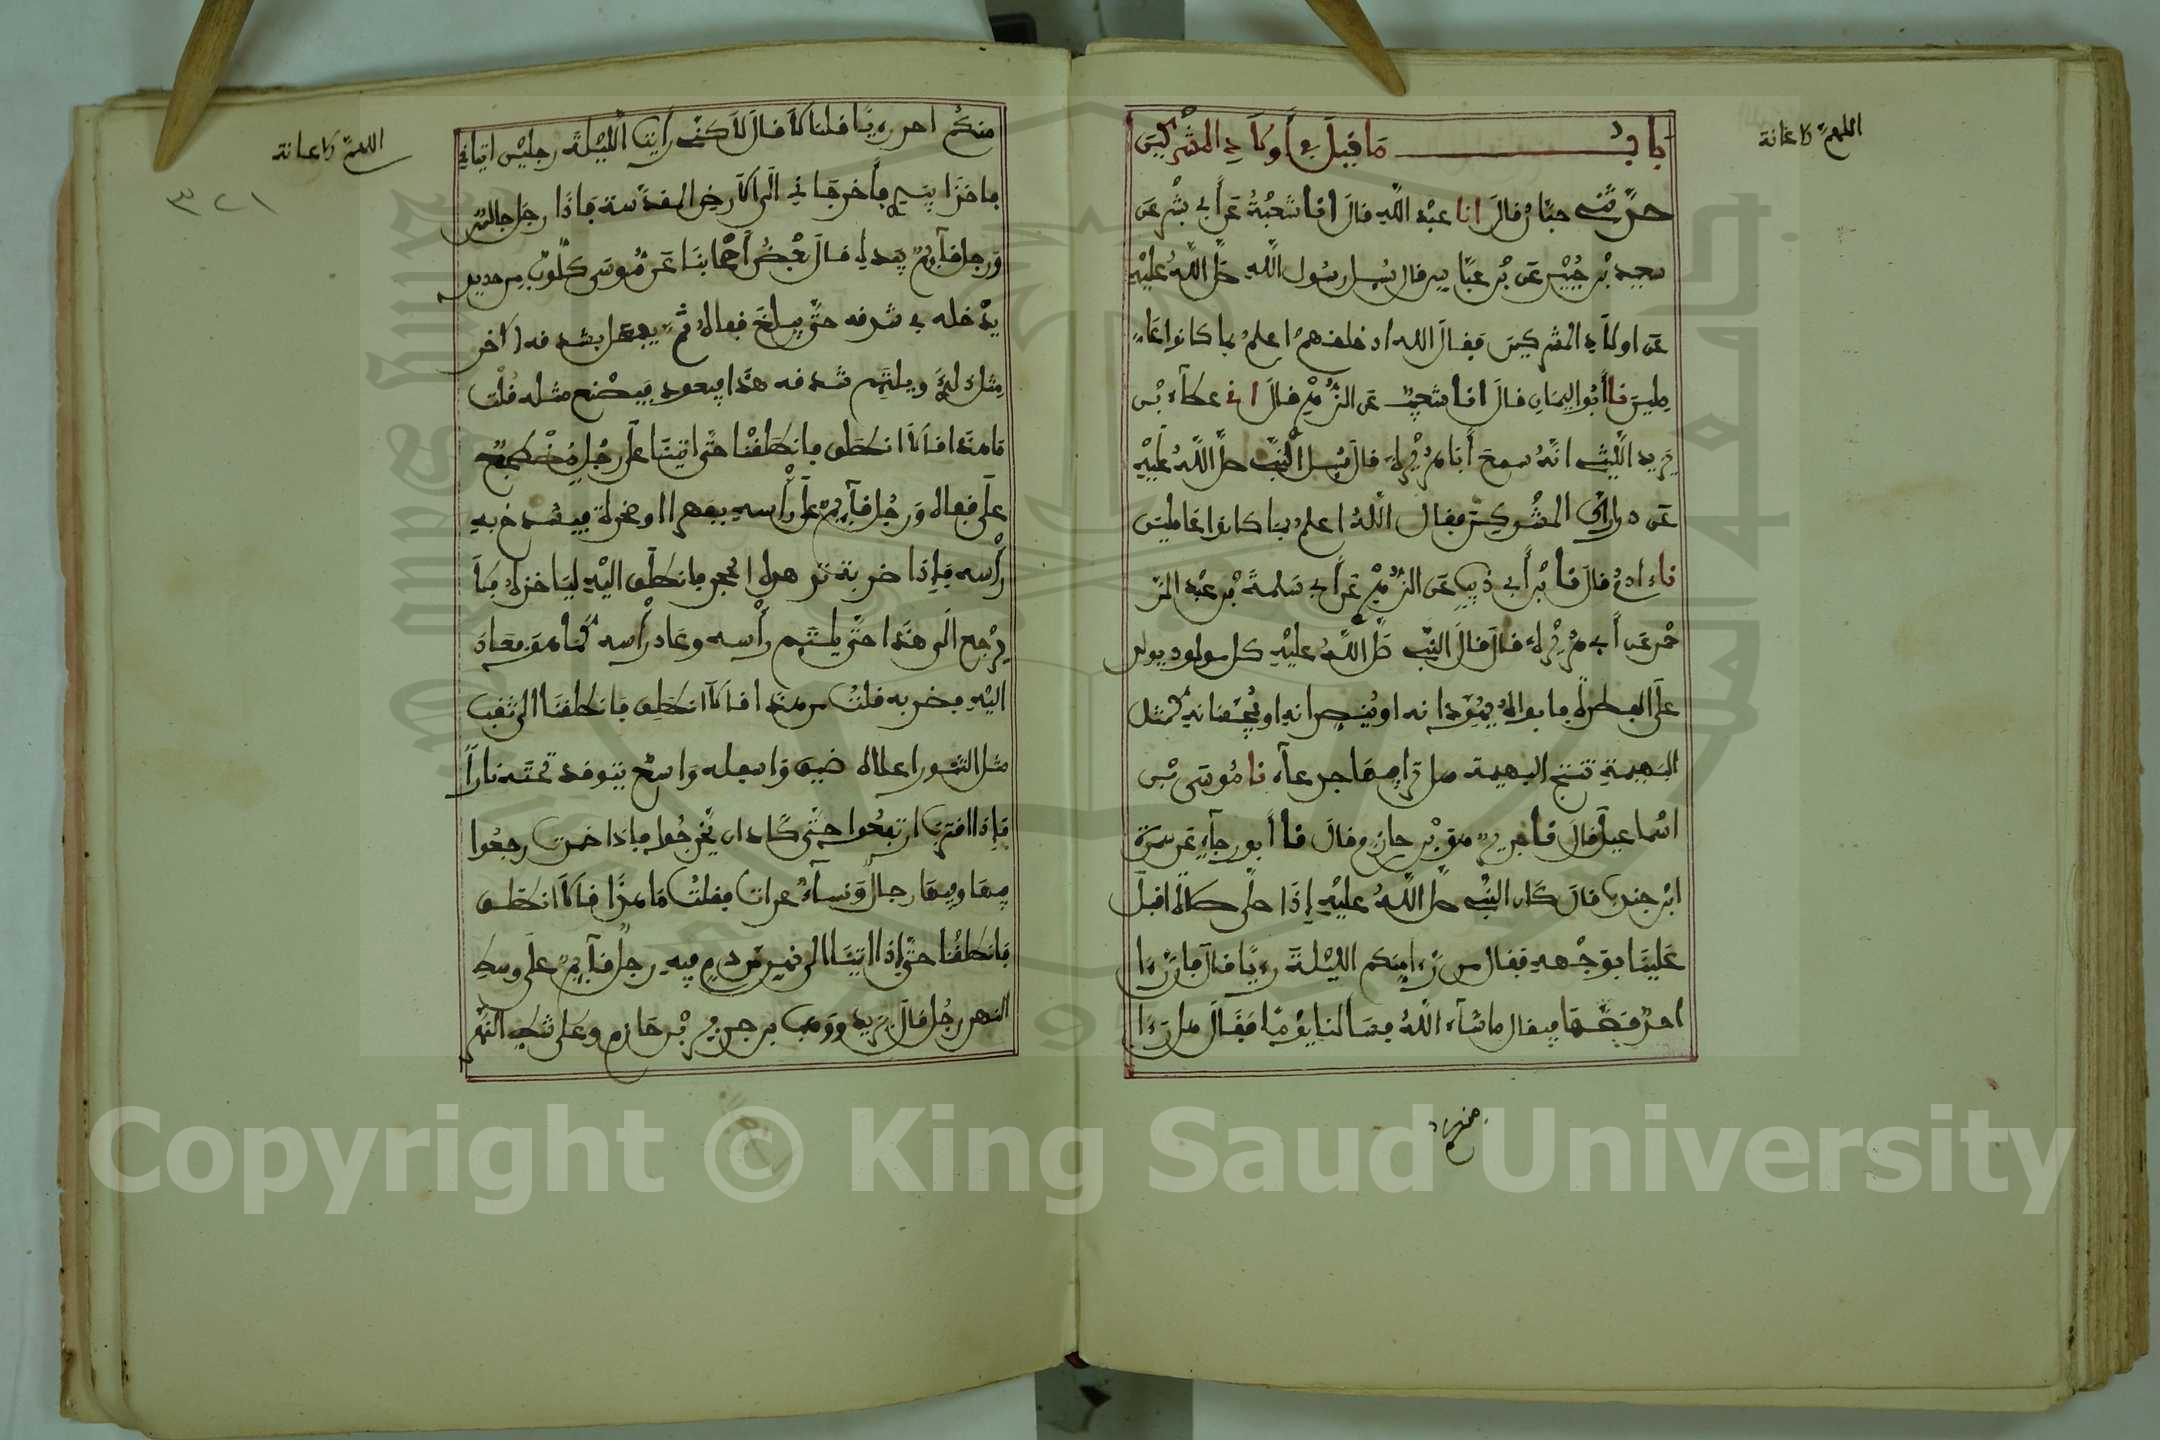 اللهم الاعانة
باب ما قيل في أولاد المشركين
حدثني حبان قال انا عبد الله قال انا شعبة عن أبي بشر عن
سعيد بن جبير عن بن عباس قال سيل رسول الله صلى الله عليه
عن اولاد المشركين فقال الله اذ خلقهم اعلم بما كانوا عا
ملين نا أبو اليمان قال انا شعيب عن الزهري قال اني عطاء بن
يزيد الليثي انه سمع أبا هريرة قال سيل النبي صلى الله عليه
عن ذراري المشركين فقال الله اعلم بما كانوا عاملين
نا ءادم قال نا بن أبي ذيب عن الزهري عن أبي سلمة بن عبد الر
حمن عن أبي هريرة قال قال النبي صلى الله عليه كل مولود يولد
على الفطرة فابواه يهودانه او ينصرانه او يمجسانه كمثل
البهيمة تنتج البهيمة هل ترى فيها جدعاء نا موسى بن
اسماعيل قال نا جرير هو بن حازم قال نا أبو رجاء عن سمرة
ابن جندب قال كان النبي صلى الله عليه إذا صلى صلاة اقبل
علينا بوجهه فقال من رءا منكم الليلة رءيا قال فان رءا
احد قصها فيقال ما شاء الله فسالنا يوما فقال هل رءا
منكم
اللهم الاعانة
٣٢١
منكم احد رءيا قلنا لا قال لاكني رايت الليلة رجلين اتياني
فاخذا بيدي فأخرجاني الى الارض المقدسة فإذا رجل جالس
ورجل قآيم بيده قال بعض أصحابنا عن موسى كلوب من حديد
يدخله في شدقه حتى يبلغ قفاه ثم يفعل بشدقه الاخر
مثل ذلك ويلتيم شدقه هذا فيعود فيصنع مثله قلت
ما هذا قالا انطلق فانطلقنا حتى اتينا على رجل مضطجع
على قفاه ورجل قآيم على رأسه بفهر او صخرة فيشدخ به
رأسه فإذا ضربه تدهده الحجر فانطلق اليه لياخذه فلا
يرجع الى هذا حتى يلتيم رأسه وعاد رأسه كما هو فعاد
اليه فضربه قلت من هذا قالا انطلق فانطلقنا الى ثقب
مثل التنور اعلاه ضيق واسفله واسع يتوقد تحته نارا
فإذا اقترب ارتفعوا حتى كادان يخرجوا فإذا خمدت رجعوا
فيها وفيها رجال ونسآء عراة فقلت ما هذا قالا انطلق
فانطلقنا حتى إذا اتينا الى نهر من دم فيه رجل قآيم على وسط
النهر رجل قال يزيد ووهب بن جرير عن جرير بن حازم وعلى شط النهر